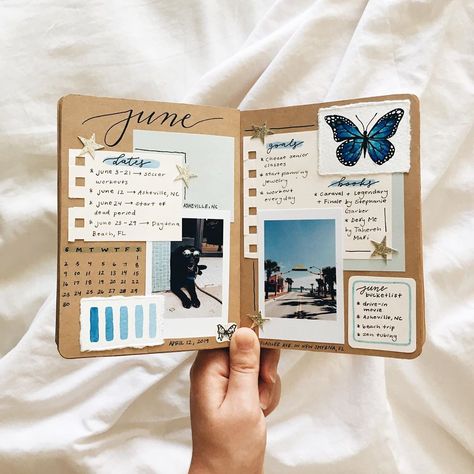 june
dates
* june 3-21 → soccer
workouts
* june 12 → Asheville, NC
* june 24 → start of
dead period
* june 25-29 → Daytona
Beach, FL
ASHEVILLE, NC
S M T W T F S
1
2 3 4 5 6 7 8
9 10 11 12 13 14 15
16 17 18 19 20 21 22
23 24 25 26 27 28 29
30
APRIL 12, 2019
goals
* choose senior
classes
* start planning
jewelry
* workout
everyday
books
* Caraval + Legendary
+ Finale by Stephanie
Garber
* Defy Me
by
Tahereh
Mafi
AVE. IN NEW SMYRNA, FL
june
bucketlist
* drive-in
movie
* Asheville, NC
* beach trip
* zen tubing